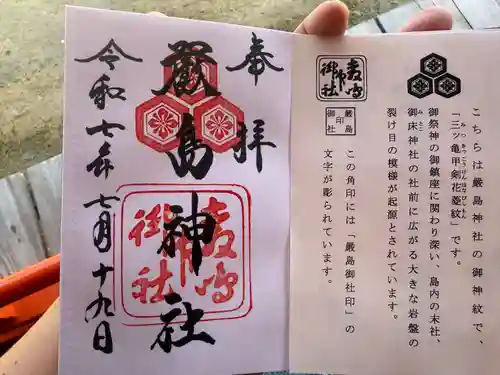 こちらは厳島神社の御神紋で、
「三ッ亀甲剣花菱紋」です。
みつきっこうけんはなびしもん
御祭神の御鎮座に関わり深い、島内の末社、
御床神社の社前に広がる大きな岩盤の
みとこ
裂け目の模様が起源とされています。
厳島
御印社
この角印には「厳島御社印」の
文字が彫られています。
奉拝
厳島神社
令和七年七月十九日